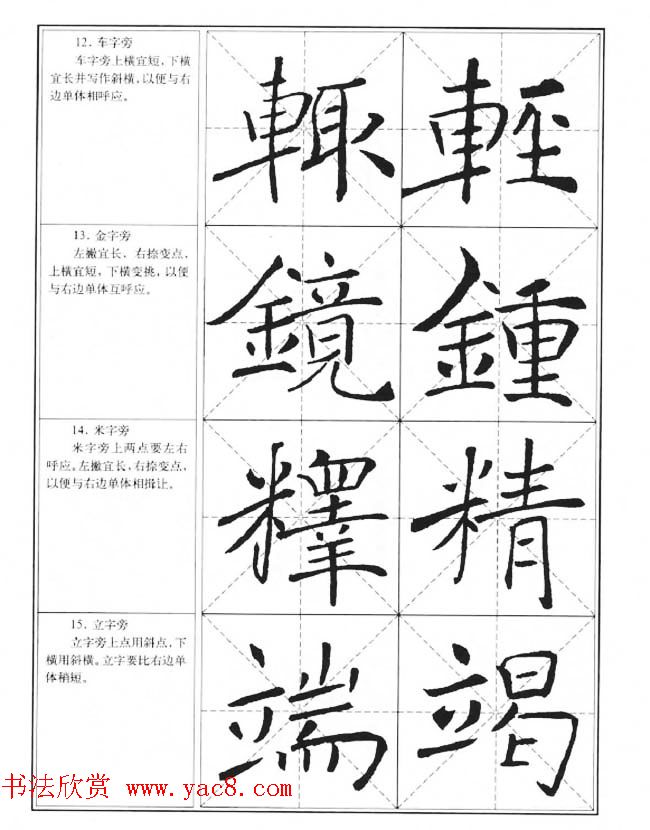 12. 车字旁
车字旁上横宜短，下横
宜长井写作斜横，以便与右
边单体相呼应。
輙 輕
13. 金字旁
左撇宜长，右捺变点，
上横宜短，下横变挑，以便
与右边单体互呼应。
鏡 鍾
14. 米字旁
米字旁上两点要左右
呼应。左撇宜长，右捺变点，
以便与右边单体相揖让。
釋 精
15. 立字旁
立字旁上点用斜点，下
横用斜横。立字要比右边单
体梢短。
端 竭
书法欣赏 www.yac8.com